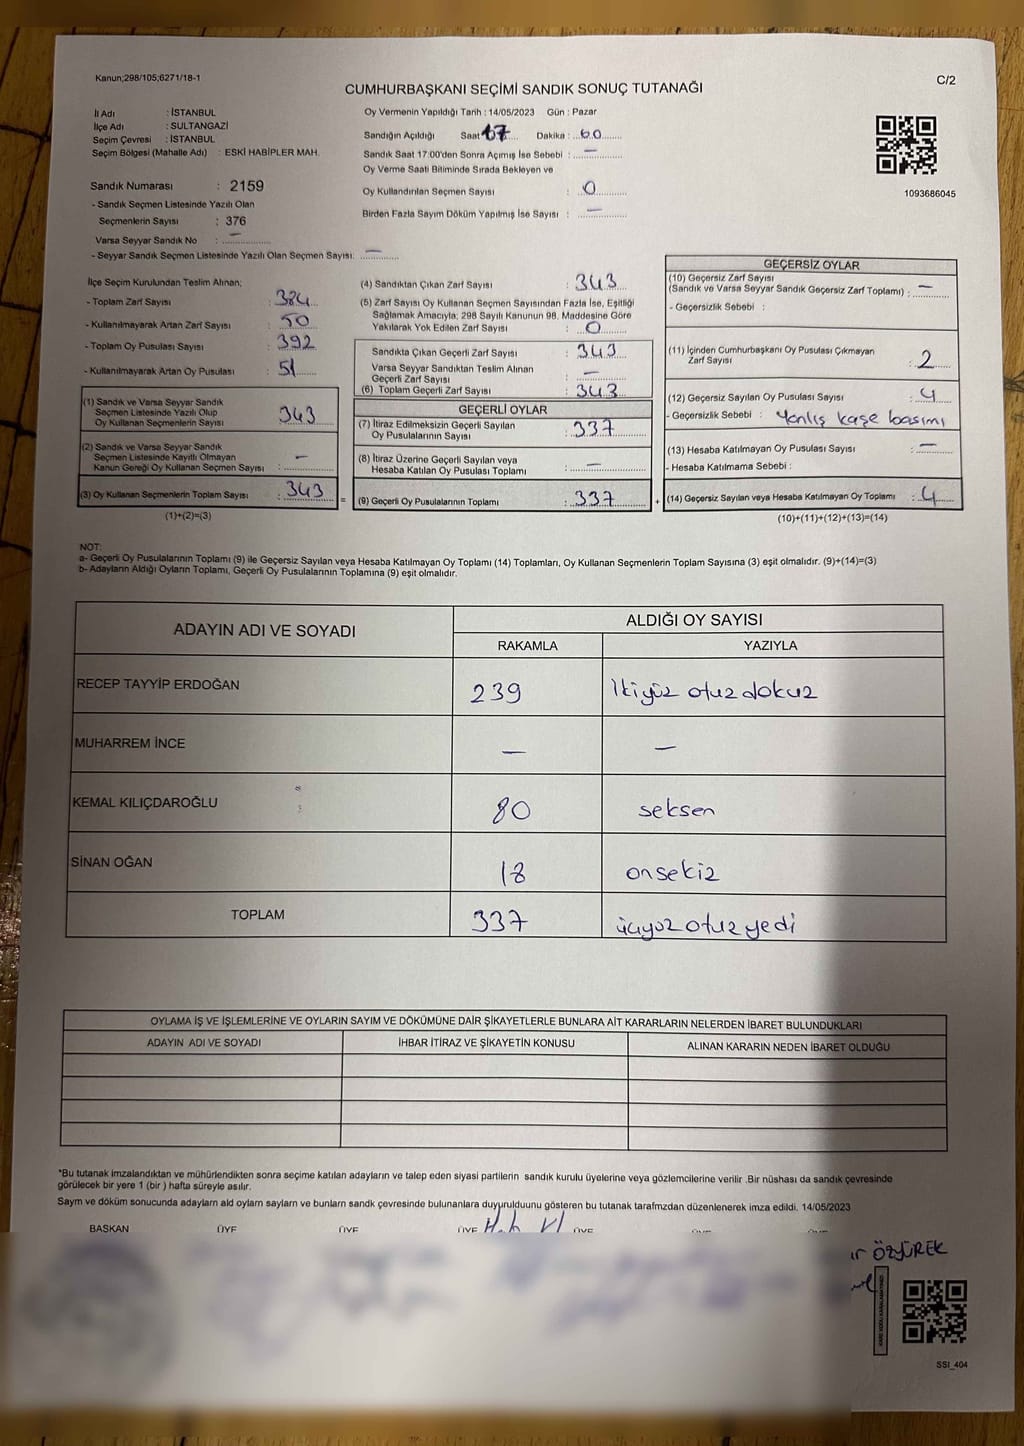 Kanun;298/105;6271/18-1
C/2
CUMHURBAŞKANI SEÇİMİ SANDIK SONUÇ TUTANAĞI
İl Adı : İSTANBUL
İlçe Adı : SULTANGAZİ
Seçim Çevresi : İSTANBUL
Seçim Bölgesi (Mahalle Adı) : ESKİ HABİPLER MAH.
Sandık Numarası : 2159
- Sandık Seçmen Listesinde Yazılı Olan
Seçmenlerin Sayısı : 376
Varsa Seyyar Sandık No : —
- Seyyar Sandık Seçmen Listesinde Yazılı Olan Seçmen Sayısı: —
Oy Vermenin Yapıldığı Tarih : 14/05/2023 Gün : Pazar
Sandığın Açıldığı Saat 17 Dakika : 00
Sandık Saat 17:00'den Sonra Açımış İse Sebebi : —
Oy Verme Saati Bitiminde Sırada Bekleyen ve
Oy Kullandırılan Seçmen Sayısı : 0
Birden Fazla Sayım Döküm Yapılmış İse Sayısı : —
1093686045
İlçe Seçim Kurulundan Teslim Alınan;
- Toplam Zarf Sayısı : 384
- Kullanılmayarak Artan Zarf Sayısı : 50
- Toplam Oy Pusulası Sayısı : 392
- Kullanılmayarak Artan Oy Pusulası : 51
(1) Sandık ve Varsa Seyyar Sandık
Seçmen Listesinde Yazılı Olup
Oy Kullanan Seçmenlerin Sayısı : 343
(2) Sandık ve Varsa Seyyar Sandık
Seçmen Listesinde Kayıtlı Olmayan
Kanun Gereği Oy Kullanan Seçmen Sayısı : —
(3) Oy Kullanan Seçmenlerin Toplam Sayısı : 343
(1)+(2)=(3)
=
(4) Sandıktan Çıkan Zarf Sayısı : 343
(5) Zarf Sayısı Oy Kullanan Seçmen Sayısından Fazla İse, Eşitliği
Sağlamak Amacıyla; 298 Sayılı Kanunun 98. Maddesine Göre
Yakılarak Yok Edilen Zarf Sayısı : 0
Sandıkta Çıkan Geçerli Zarf Sayısı : 343
Varsa Seyyar Sandıktan Teslim Alınan
Geçerli Zarf Sayısı : —
(6) Toplam Geçerli Zarf Sayısı : 343
GEÇERLİ OYLAR
(7) İtiraz Edilmeksizin Geçerli Sayılan
Oy Pusulalarının Sayısı : 337
(8) İtiraz Üzerine Geçerli Sayılan veya
Hesaba Katılan Oy Pusulası Toplamı : —
(9) Geçerli Oy Pusulalarının Toplamı : 337
+
GEÇERSİZ OYLAR
(10) Geçersiz Zarf Sayısı
(Sandık ve Varsa Seyyar Sandık Geçersiz Zarf Toplamı) : —
- Geçersizlik Sebebi :
(11) İçinden Cumhurbaşkanı Oy Pusulası Çıkmayan
Zarf Sayısı : 2
(12) Geçersiz Sayılan Oy Pusulası Sayısı : 4
- Geçersizlik Sebebi : Yanlış kaşe basımı
(13) Hesaba Katılmayan Oy Pusulası Sayısı : —
- Hesaba Katılmama Sebebi :
(14) Geçersiz Sayılan veya Hesaba Katılmayan Oy Toplamı : 4
(10)+(11)+(12)+(13)=(14)
NOT:
a- Geçerli Oy Pusulalarının Toplamı (9) ile Geçersiz Sayılan veya Hesaba Katılmayan Oy Toplamı (14) Toplamları, Oy Kullanan Seçmenlerin Toplam Sayısına (3) eşit olmalıdır. (9)+(14)=(3)
b- Adayların Aldığı Oyların Toplamı, Geçerli Oy Pusulalarının Toplamına (9) eşit olmalıdır.
ADAYIN ADI VE SOYADI
ALDIĞI OY SAYISI
RAKAMLA YAZIYLA
RECEP TAYYİP ERDOĞAN 239 İkiyüz otuz dokuz
MUHARREM İNCE — —
KEMAL KILIÇDAROĞLU 80 seksen
SİNAN OĞAN 18 onsekiz
TOPLAM 337 üçyüz otuz yedi
OYLAMA İŞ VE İŞLEMLERİNE VE OYLARIN SAYIM VE DÖKÜMÜNE DAİR ŞİKAYETLERLE BUNLARA AİT KARARLARIN NELERDEN İBARET BULUNDUKLARI
ADAYIN ADI VE SOYADI İHBAR İTİRAZ VE ŞİKAYETİN KONUSU ALINAN KARARIN NEDEN İBARET OLDUĞU
*Bu tutanak imzalandıktan ve mühürlendikten sonra seçime katılan adayların ve talep eden siyasi partilerin sandık kurulu üyelerine veya gözlemcilerine verilir .Bir nüshası da sandık çevresinde
görülecek bir yere 1 (bir ) hafta süreyle asılır.
Sayım ve döküm sonucunda adayların ald oyların sayların ve bunların sandk çevresinde bulunanlara duyurulduunu gösteren bu tutanak tarafmzdan düzenlenerek imza edildi. 14/05/2023
BAŞKAN ÜYE ÜYE ÜYE ÜYE
ÖZYÜREK
SSI_404